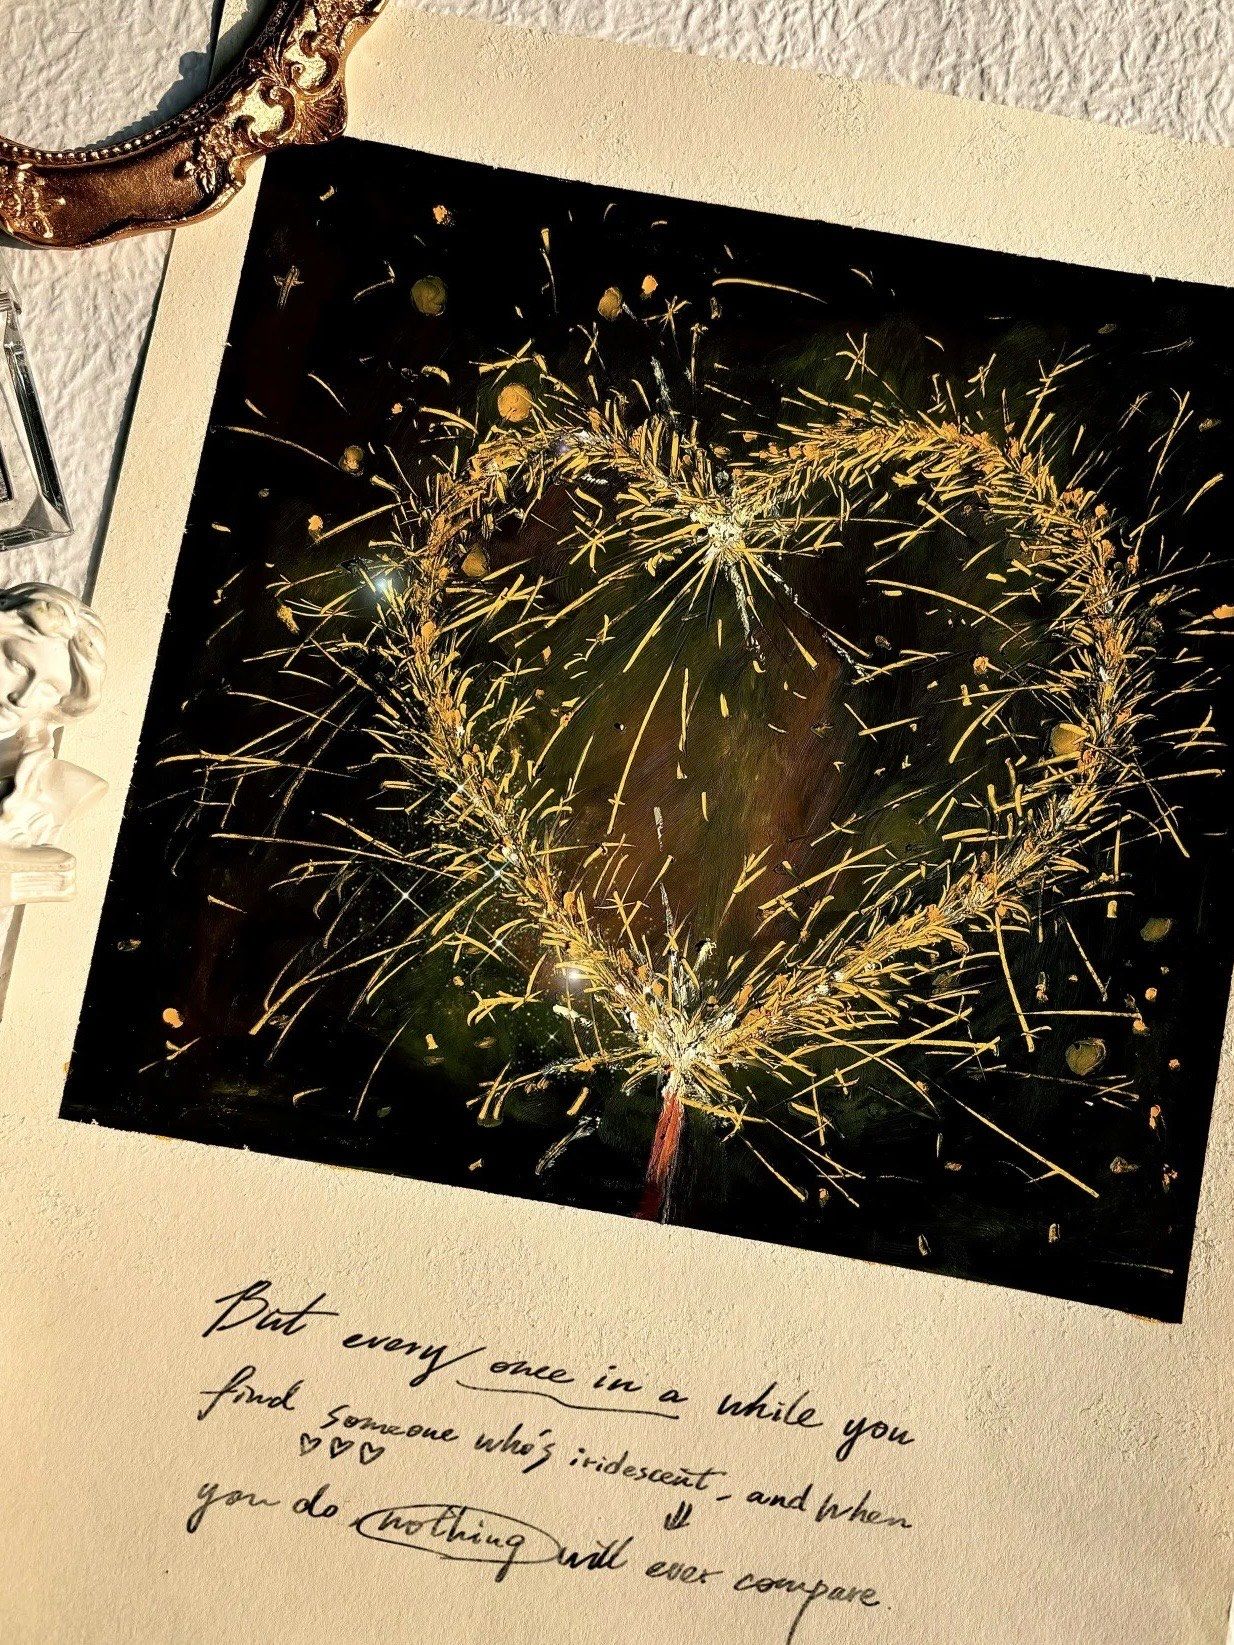 But every once in a while you
find someone who's iridescent, and when
you do nothing will ever compare.